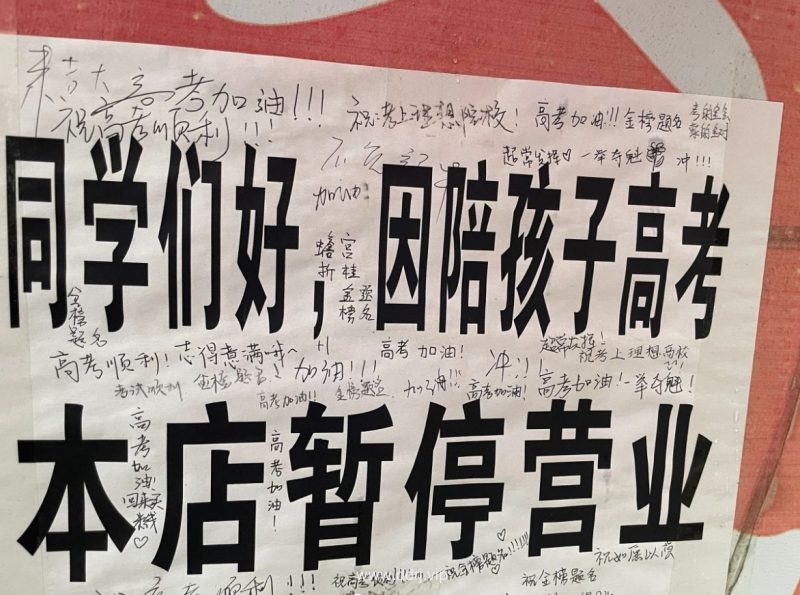 高考加油!!!
祝高考顺利!!!
祝考上理想院校!
高考加油!!!
金榜题名
超常发挥♡
一举夺魁
冲!!!
加油!
同学们好，因陪孩子高考
蟾宫
折桂
金榜题名
高考顺利!志得意满哦~
+1
高考加油!
超常发挥!
祝考上理想高校
考试顺利
金榜题名!
加油!!!
冲!!!
高考加油!!
加油!!!
高考加油!
高考加油!一举夺魁!
本店暂停营业
高考加油!
高考加油!
祝金榜题名!!!!!!
祝如愿以偿
祝金榜题名